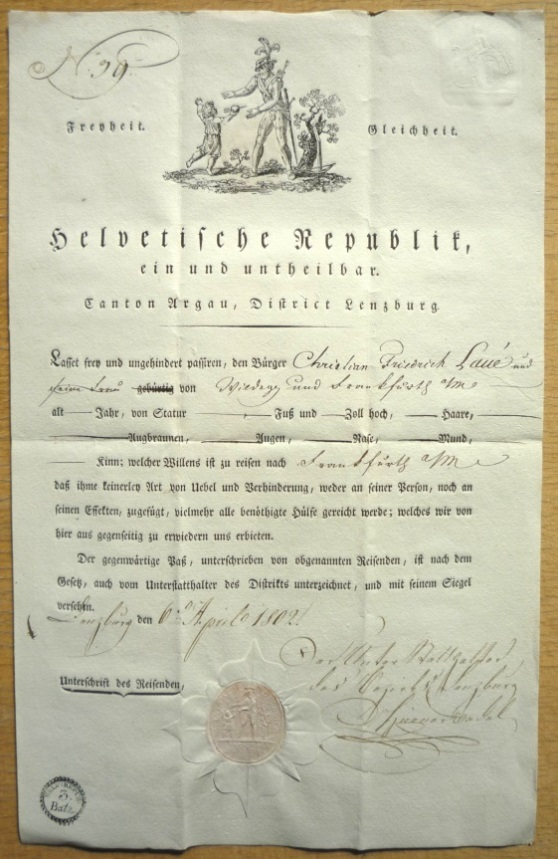 N.º 39.
Freyheit. Gleichheit.
Helvetische Republik,
ein und untheilbar.
Canton Argau, District Lenzburg
Lasset frey und ungehindert passiren, den Bürger Christian Friedrich Laué und
seine Frau gebürtig von Wildegg und Frankfurth a/m
alt — Jahr, von Statur — Fuß und — Zoll hoch, — Haare,
— Augbraunen, — Augen, — Nase, — Mund,
— Kinn; welcher Willens ist zu reisen nach Frankfurth a/m
daß ihme keinerley Art von Uebel und Verhinderung, weder an seiner Person, noch an
seinen Effekten, zugefügt, vielmehr alle benöthigte Hülfe gereicht werde; welches wir von
hier aus gegenseitig zu erwiedern uns erbieten.
Der gegenwärtige Paß, unterschrieben von obgenannten Reisenden, ist nach dem
Gesetz, auch vom Unterstatthalter des Distrikts unterzeichnet, und mit seinem Siegel
versehen.
Lenzburg den 6ᵗ Aprile 1802.
Der Unter Statthalter
des Bezirks Lenzburg
Unterschrift des Reisenden,
Hünerwadel
3
Batz.